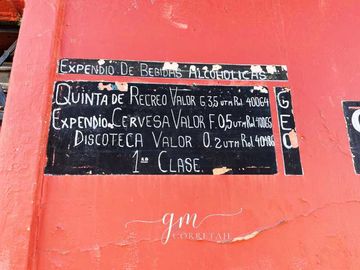 EXPENDIO DE BEBIDAS ALCOHOLICAS
QUINTA DE RECREO VALOR G 3,5 UTM Rol 40064
EXPENDIO CERVESA VALOR F. 0,5 UTM Rol 40065
DISCOTECA VALOR O. 2 UTM Rol 40486
1ra CLASE
G
E
O
gm
CORRETAJE